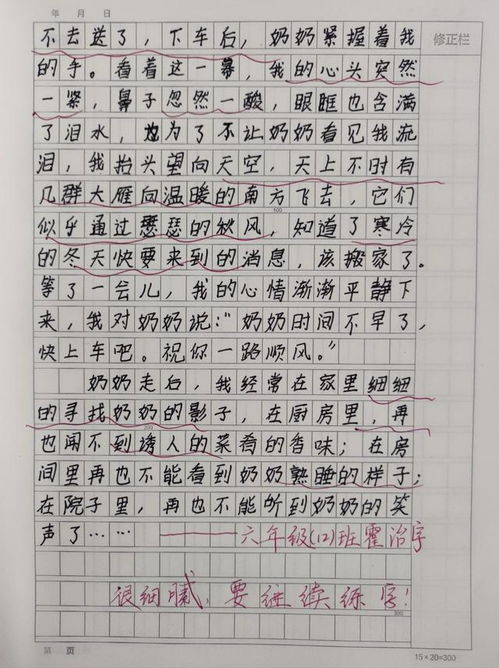 年 月 日
修正栏
不去送了，下车后，奶奶紧握着我
的手。看着这一幕，我的心头突然
一紧，鼻子忽然一酸，眼眶也含满
了泪水，也为了不让奶奶看见我流
泪，我抬头望向天空，天上不时有
几群大雁向温暖的南方飞去，它们
100
似乎通过瑟瑟的秋风，知道了寒冷
的冬天快要来到的消息，该搬家了。
等了一会儿，我的心情渐渐平静下
来，我对奶奶说：“奶奶时间不早了，
快上车吧。祝你一路顺风。”
奶奶走后，我经常在家里细细
的寻找奶奶的影子，在厨房里，再
200
也闻不到诱人的菜肴的香味；在房
间里再也不能看到奶奶熟睡的样子；
在院子里，再也不能听到奶奶的笑
声了……
——六年级(12)班霍治宇
很细腻，要继续练字！
300
第 页
15×20=300